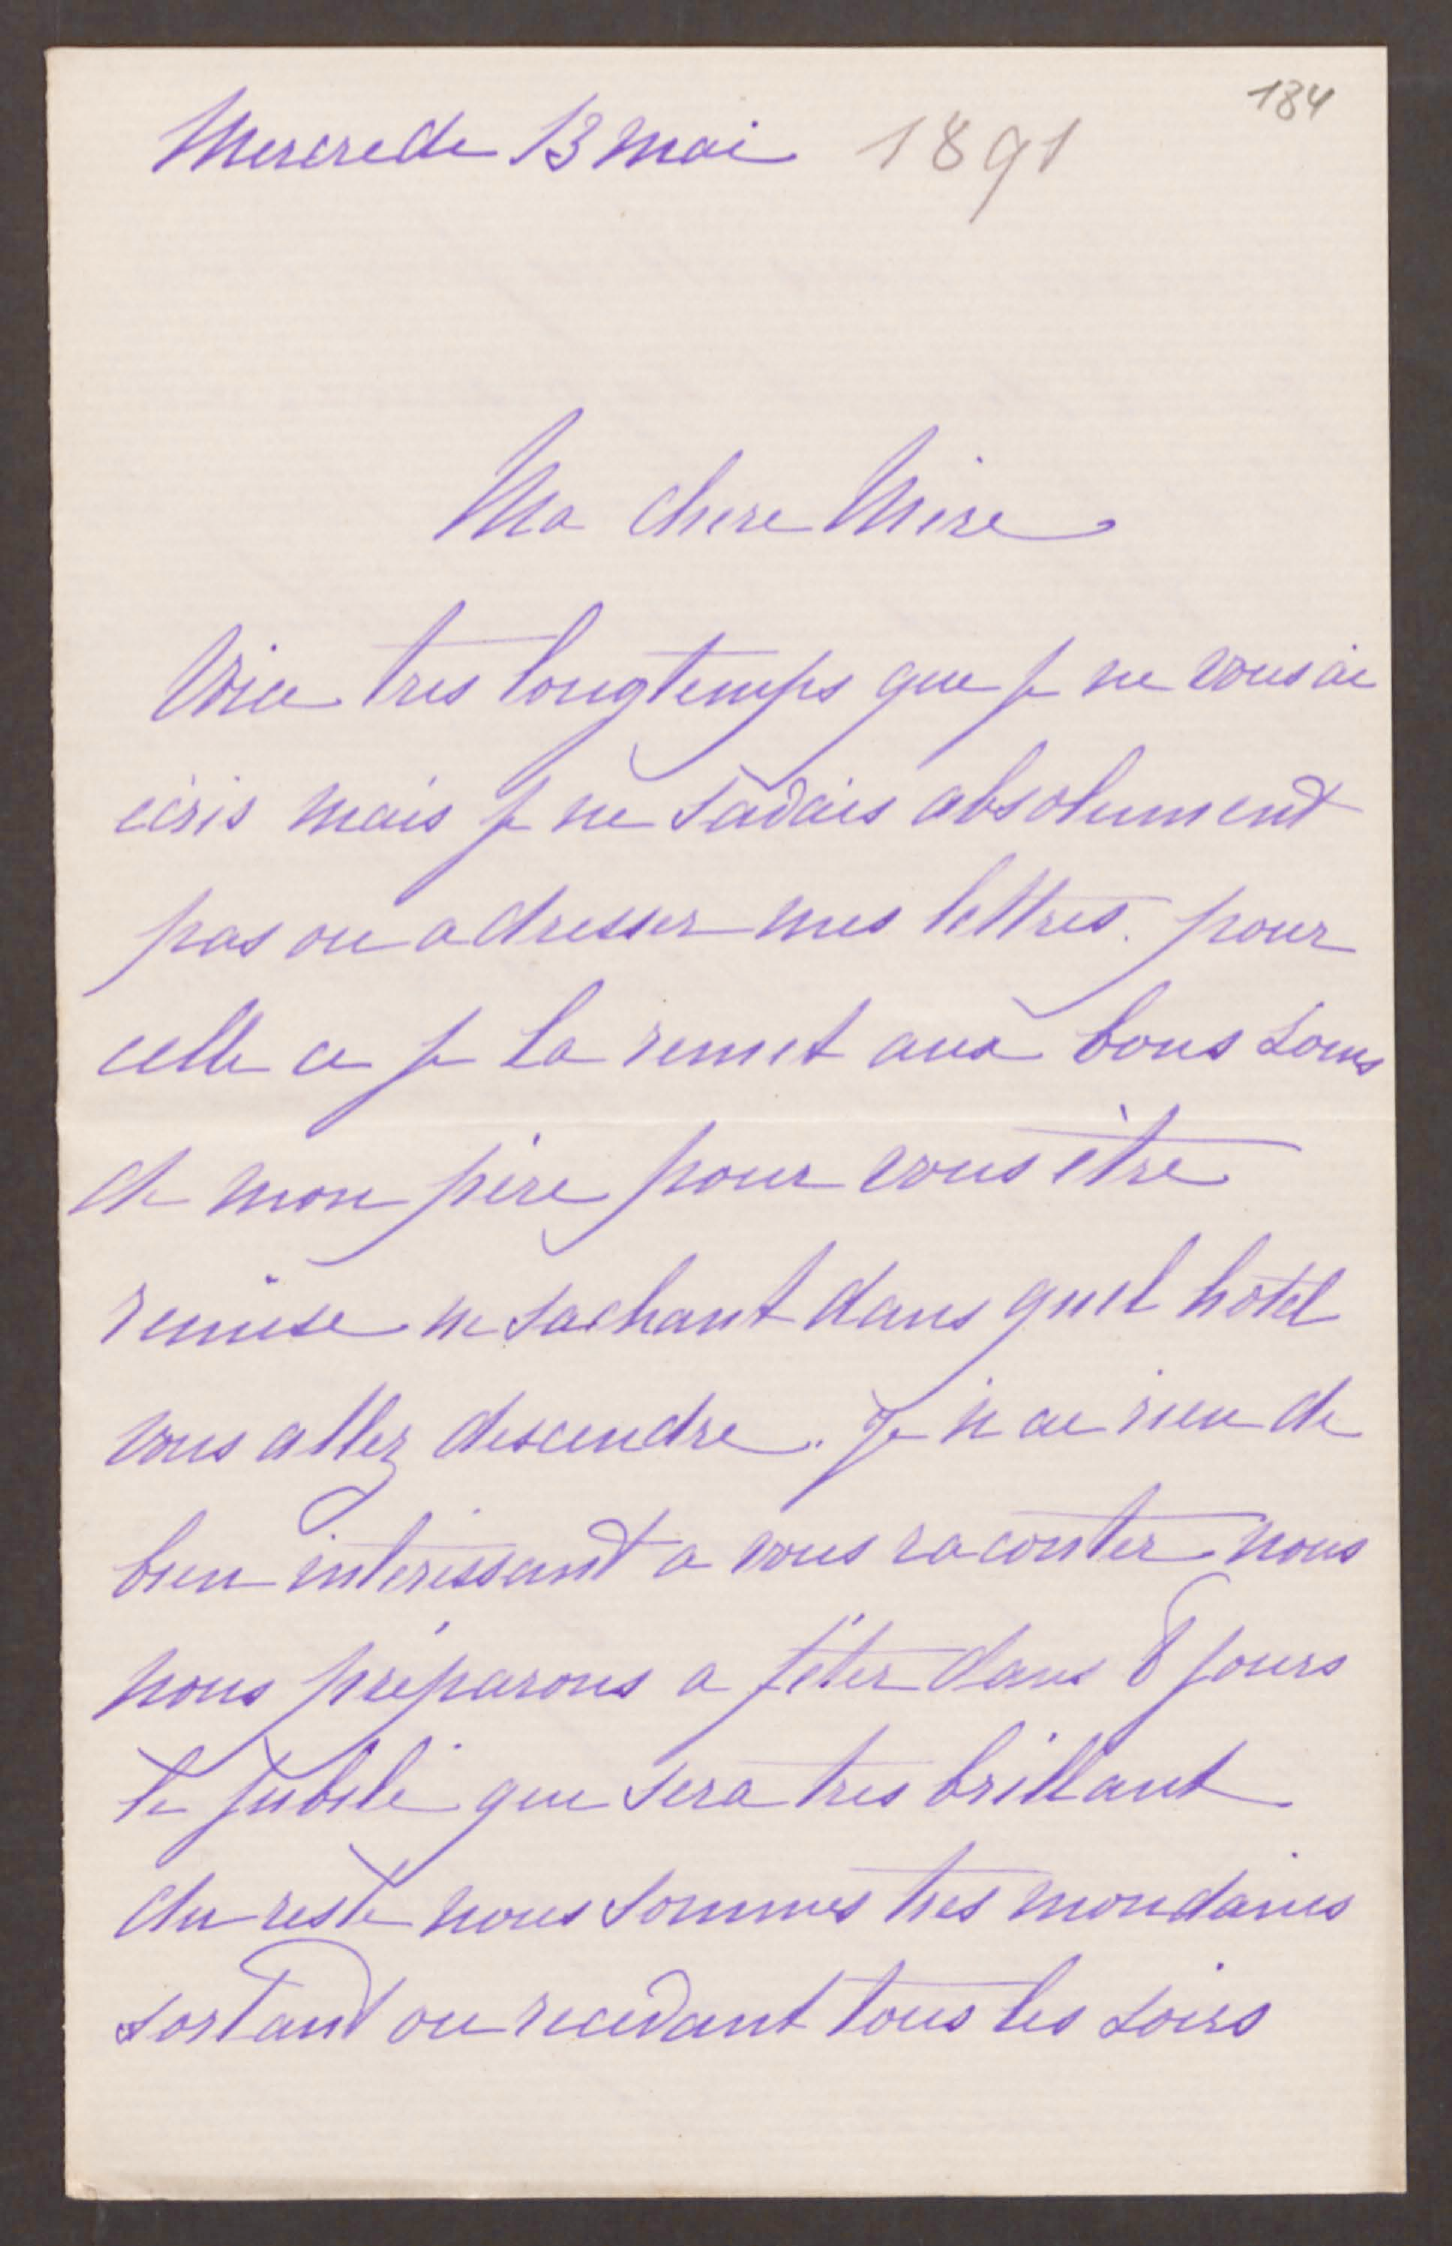 184
Mercredi 13 mai 1891
Ma chere Mère
Voici tres longtemps que je ne vous ai
écris mais je ne savais absolument
pas ou adresser mes lettres. pour
celle ci je la remet aux bons soins
de mon père pour vous être
remise ne sachant dans quel hôtel
vous allez descendre. Je n'ai rien de
bien interessant a vous raconter nous
nous préparons a fêter dans 8 jours
le jubilé qui sera tres brillant
du reste nous sommes tres mondains
sortant ou recevant tous les soirs